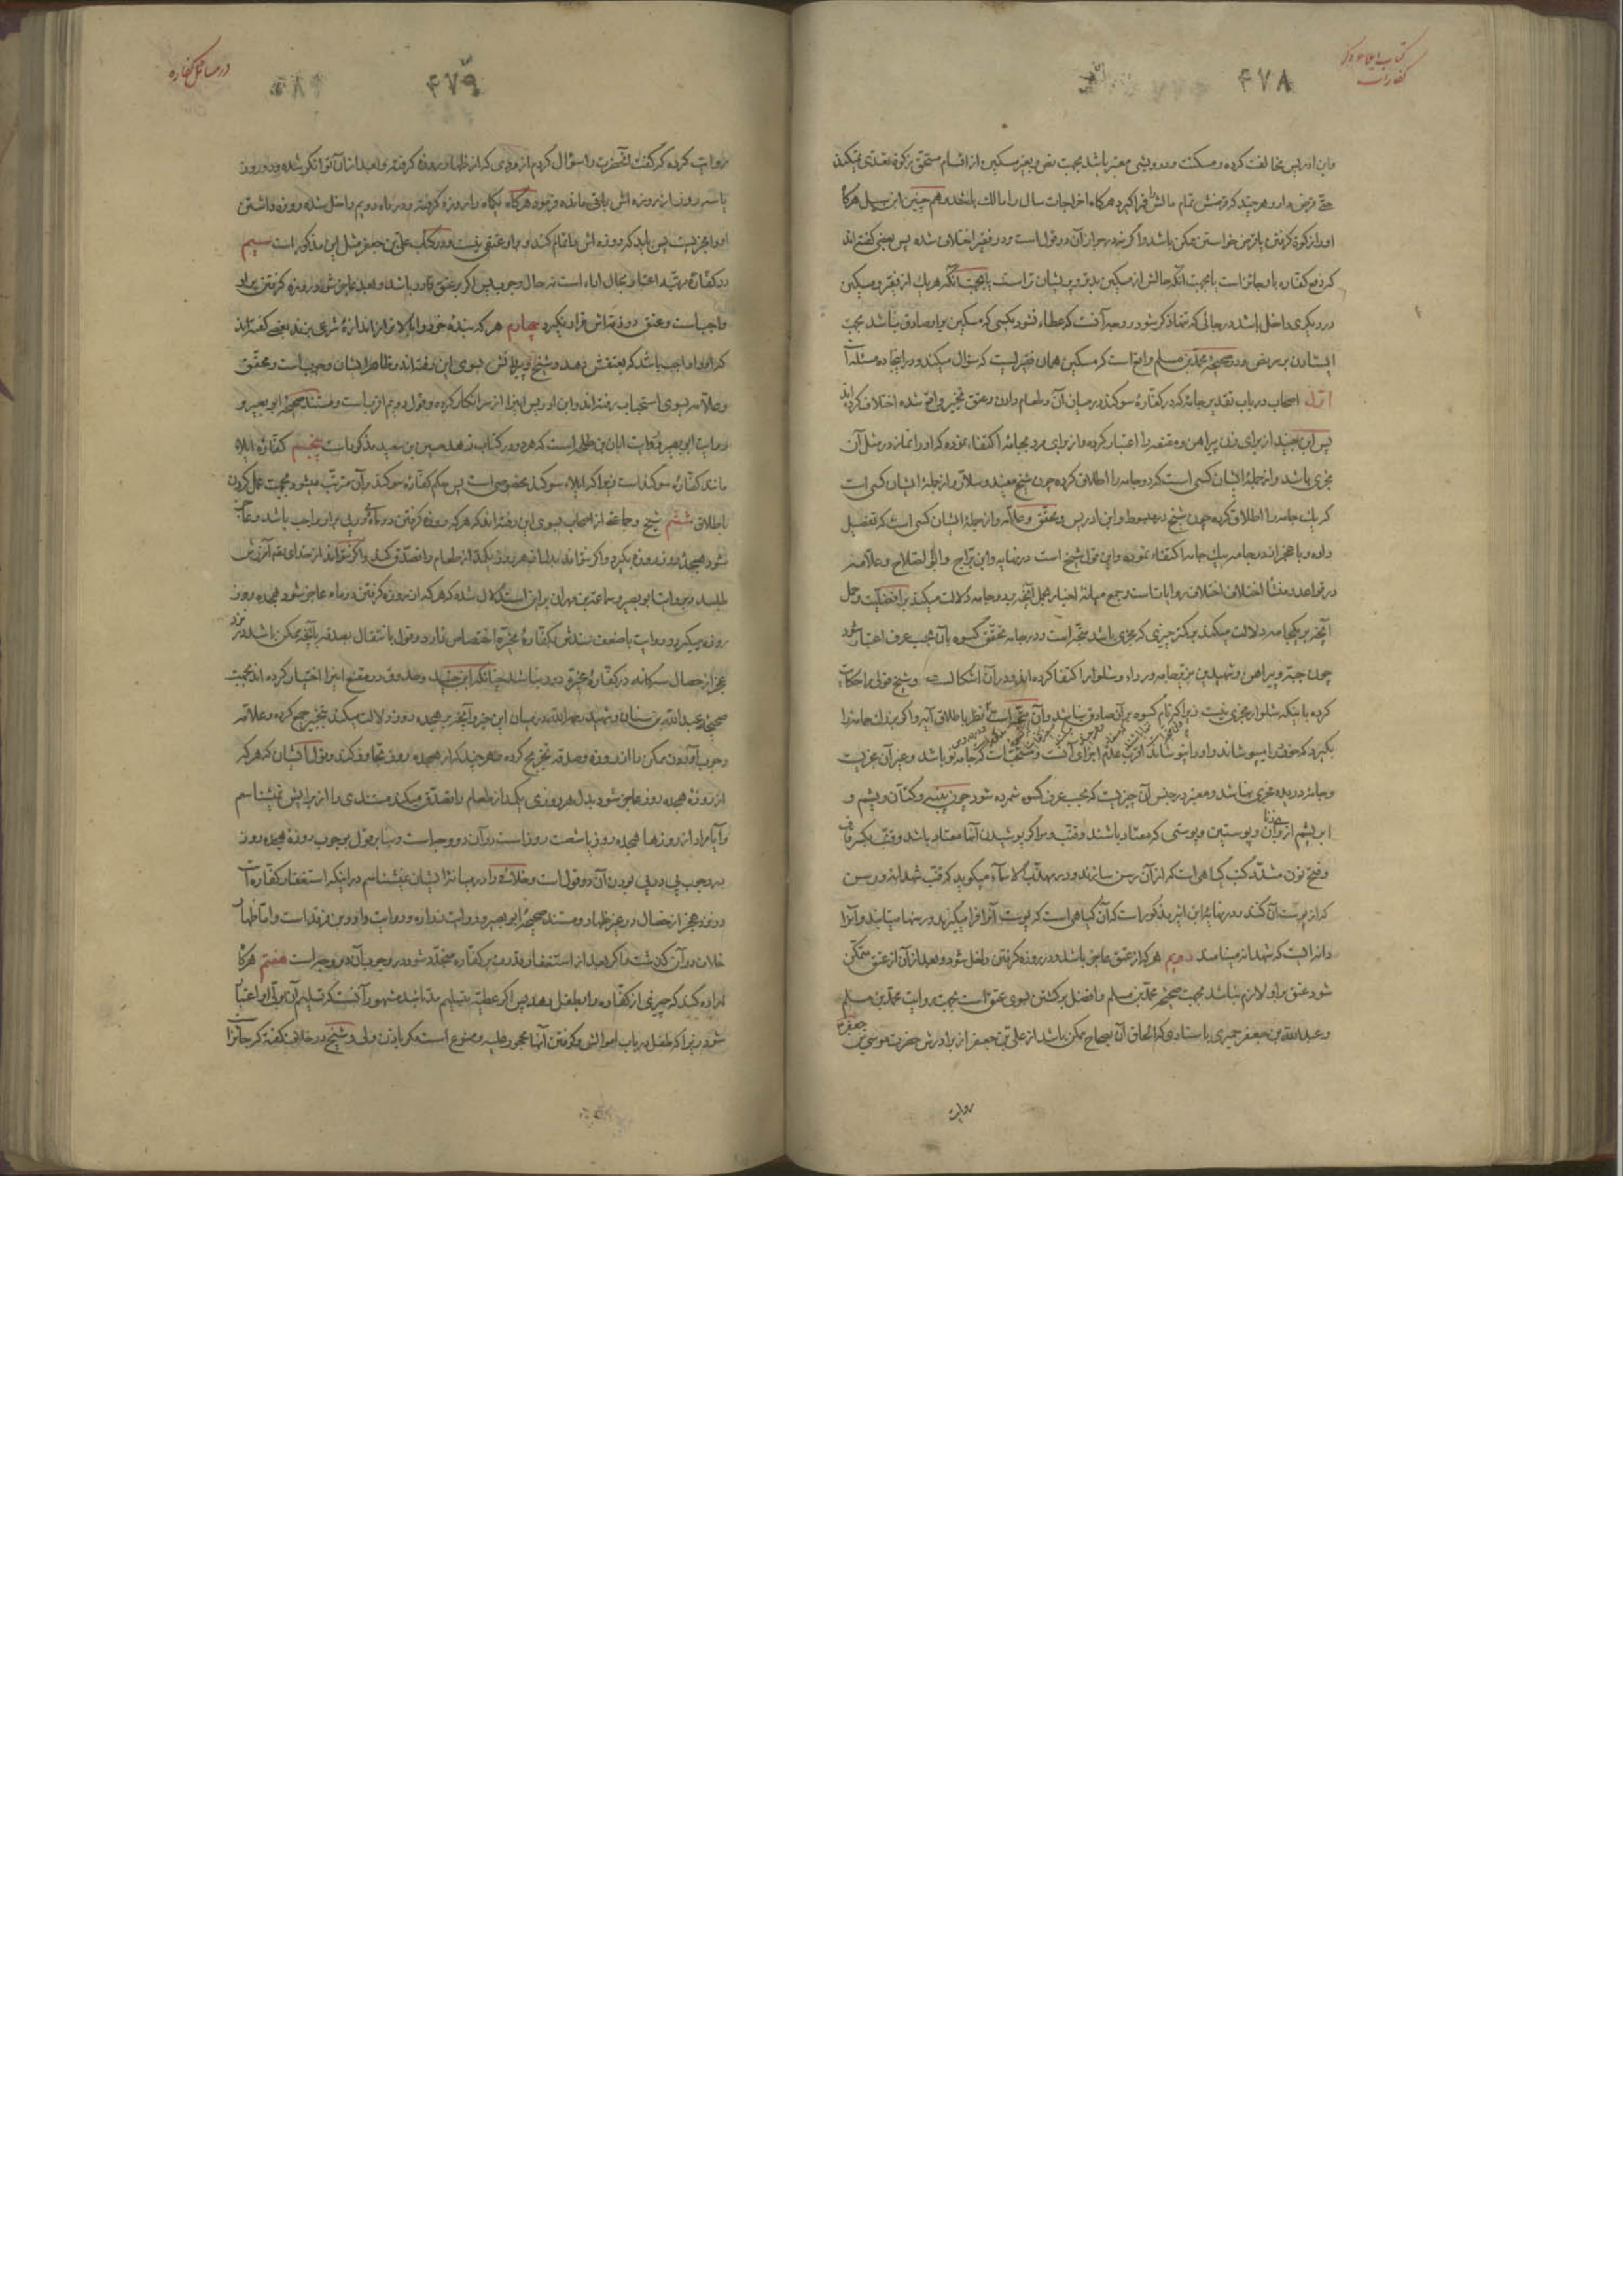 کتاب
کفارات
۴۷۸
وابن ادریس مخالفت کرده و مسکنت و درویشی معتبر باشد بجهت نص و بغیر مسکین از اقسام مستحق زکوة تعدی نمیکند
حتی قرض دار و هر چند که قرضش تمام مالش فرا گیرد هرگاه اخراجات سال را مالک باشد و هم چنین ابن سبیل هرگاه
او را زکوة گرفتن یا قرض خواستن ممکن باشد و اگر نه در جواز آن دو قول است و در فقیر اختلاف شده پس بعضی گفته‌اند
که دفع کفاره باو جائز است یا بجهت آنکه حالش از مسکین بدتر و پریشان تر است یا بجهت آنکه هر یک از فقیر و مسکین
در دیگری داخل باشد در جائی که تنها ذکر شود و وجه آنست که عطاء نشود بکسی که مسکین بر او صادق نباشد بجهت
ایستادن بر نص و در صحیحه محمد بن مسلم واقع است که مسکین همان فقیریست که سؤال میکند و در اینجا ده مسئله است
اول اصحاب در باب تقدیر جامه که در کفاره سوکند در میان آن و طعام دادن و عتق تخییر واقع شده اختلاف کرده‌اند
پس ابن جنید از برای زن پیراهن و مقنعه را اعتبار کرده و از برای مرد بجامه اکتفاء نموده که او را نماز در مثل آن
مجزی باشد و از جملۀ ایشان کسی است که دو جامه را اطلاق کرده چون شیخ مفید و سلار و از جملۀ ایشان کسی است
که یک جامه را اطلاق کرده چون شیخ در مبسوط و ابن ادریس و محقق و علامه و از جملۀ ایشان کسی است که تفصیل
داده و با عجز از دو جامه بیک جامه اکتفاء نموده و این قول شیخ است در نهایه و ابن براج و ابی الصلاح و علامه
در قواعد و منشأ اختلاف اختلاف روایات است و جمع میانۀ اخبار بحمل آنچه بر دو جامه دلالت میکند بر افضلیت و حمل
آنچه بر یکجامه دلالت میکند بر کمتر چیزی که مجزی باشد متجه است و در جامه تحقق کسوه بآن بحسب عرف اعتبار شود
چون جبه و پیراهن و شهیدین نیز بجامه و رداء و شلوار اکتفا کرده‌اند و در آن اشکال است و شیخ قولی را حکایت
کرده باینکه شلوار مجزی نیست زیرا که نام کسوه بر آن صادق نباشد و آن متجه است نظر باطلاق آیه و اگر بزرگ جامه را
بگیرد که خورد را میپوشاند و او را نپوشاند اقرب عدم اجزای آنست و مستحب است که جامه نو باشد و غیر آن مجزیست
و جامۀ دریده مجزی نباشد و معتبر در جنس آن چیزیست که بحسب عرف کسوه شمرده شود چون پنبه و کتان و پشم و
ابریشم از برای زنان و پوستین و پوستی که معتاد باشند و قنب و برا که پوشیدن آنها معتاد باشد و قنب بکسر قاف
و فتح نون مشدد کنب گیاهی است که از آن رسن سازند و در مهذب الاسماء میگوید که قنب شهدانه و رسن
که از پوست آن کنند و در نهایۀ ابن اثیر مذکور است که آن گیاهی است که پوست آنرا فرا میگیرند و ریسمانها میتابند و آنرا
دانه ایست که شهدانه مینامند دویم هر که از عتق عاجز باشد و در روزه گرفتن داخل شود و بعد از آن از عتق متمکن
شود عتق بر او لازم نباشد بجهت صحیحه محمد بن مسلم و افضل برگشتن بسوی عتق است بجهت روایت محمد بن مسلم
و عبدالله بن جعفر حمیری باسنادی که الحاق آن بصحاح ممکن باشد از علی بن جعفر از برادرش حضرت موسی بن جعفر ع
روایت
در مسائل کفاره
۴۷۹
روایت کرده که گفت آنحضرت را سؤال کردم از مردی که از ظهار روزه گرفته و بعد از آن توانگر شده و دو روز
یا سه روز از روزه اش باقی مانده فرمود هرگاه یکماه را روزه گرفته و در ماه دویم داخل شده روزه داشتن
او را مجزیست پس باید که روزه اش را تمام کند و بر او عتقی نیست و در کتاب علی بن جعفر مثل این مذکور است سیم
در کفارۀ مرتبه اعتبار بحال اداء است نه حال وجوب پس اگر بر عتق قادر باشد و بعد عاجز شود روزه گرفتن بر او
واجب است و عتق در ذمه اش قرار نگیرد چهارم هر که بندۀ خود را بالاتر از اندازۀ شرعی بزند بعضی گفته‌اند
که او را واجب باشد که بعتقش دهد و شیخ و پیروانش بسوی این رفته‌اند و ظاهر ایشان وجوبست و محقق
و علامه بسوی استحباب رفته‌اند و ابن ادریس اینرا از سر انکار کرده و قول دویم اقربست و مستند صحیحۀ ابو بصیر و
روایت ابو بصیر و روایت ابان بن طلحه است که هر دو در کتاب زهد حسین بن سعید مذکور است پنجم کفارۀ ایلاء
مانند کفارۀ سوکند است زیرا که ایلاء سوکند مخصوصی است پس حکم کفارۀ سوکند بر آن مترتب میشود بجهت عمل کردن
باطلاق ششم شیخ و جماعتی از اصحاب بسوی این رفته‌اند که هر که روزه گرفتن دو ماه پی در پی بر او واجب باشد و عاجز
شود هیجده روز روزه بگیرد و اگر نتواند بدل از هر روز یکمد از طعام را تصدق کند و اگر نتواند از خدای تعالی آمرزش
طلبد و بروایت ابو بصیر و سماعة بن مهران بر این استدلال شده که هر که از روزه گرفتن دو ماه عاجز شود هیجده روز
روزه میگیرد و روایت با ضعف سندش بکفارۀ مخیره اختصاص ندارد و قول بانتقال بصدقه بآنچه ممکن باشد نزد
عجز از خصال سه گانه در کفارۀ مخیره دور نباشد چنانکه ابن جنید و صدوق در مقنع اینرا اختیار کرده‌اند بجهت
صحیحۀ عبدالله بن سنان و شهید رحمه الله در میان این خبر و آنچه بر هیجده روز دلالت میکند بتخییر جمع کرده و علامه
وجوب آوردن ممکن را از روزه و صدقه تخریج کرده و هر چند که از هیجده روز تجاوز کند و قول ایشان که هر که
از روزۀ هیجده روز عاجز شود بدل هر روزی یکمد از طعام را تصدق میکند مستندی را از برایش نمیشناسم
و آیا مراد از روزها هیجده روز یا شصت روز است در آن دو وجه است و بنا بر قول بوجوب روزۀ هیجده روز
در وجوب پی در پی بودن آن دو قول است و خلافی را در میانۀ ایشان نمیشناسم در اینکه استغفار کفاره است
در نزد عجز از خصال در غیر ظهار و مستند صحیحۀ ابو بصیر و روایت زراره و روایت داود بن فرقد است و اما ظهار
خلاف در آن گذشت و اگر بعد از استغفار قدرت بر کفاره متجدد شود در وجوب آن دو وجه است هفتم هرگاه
اراده کند که چیزی از کفاره را بطفل بدهد پس اگر عطیه بتسلیم مد باشد مشهور آنست که تسلیم آن بولی او اعتبار
شود زیرا که طفل در باب اموالش و گرفتن آنها محجور علیه و ممنوع است مگر باذن ولی و شیخ در خلاف گفته که جائز است